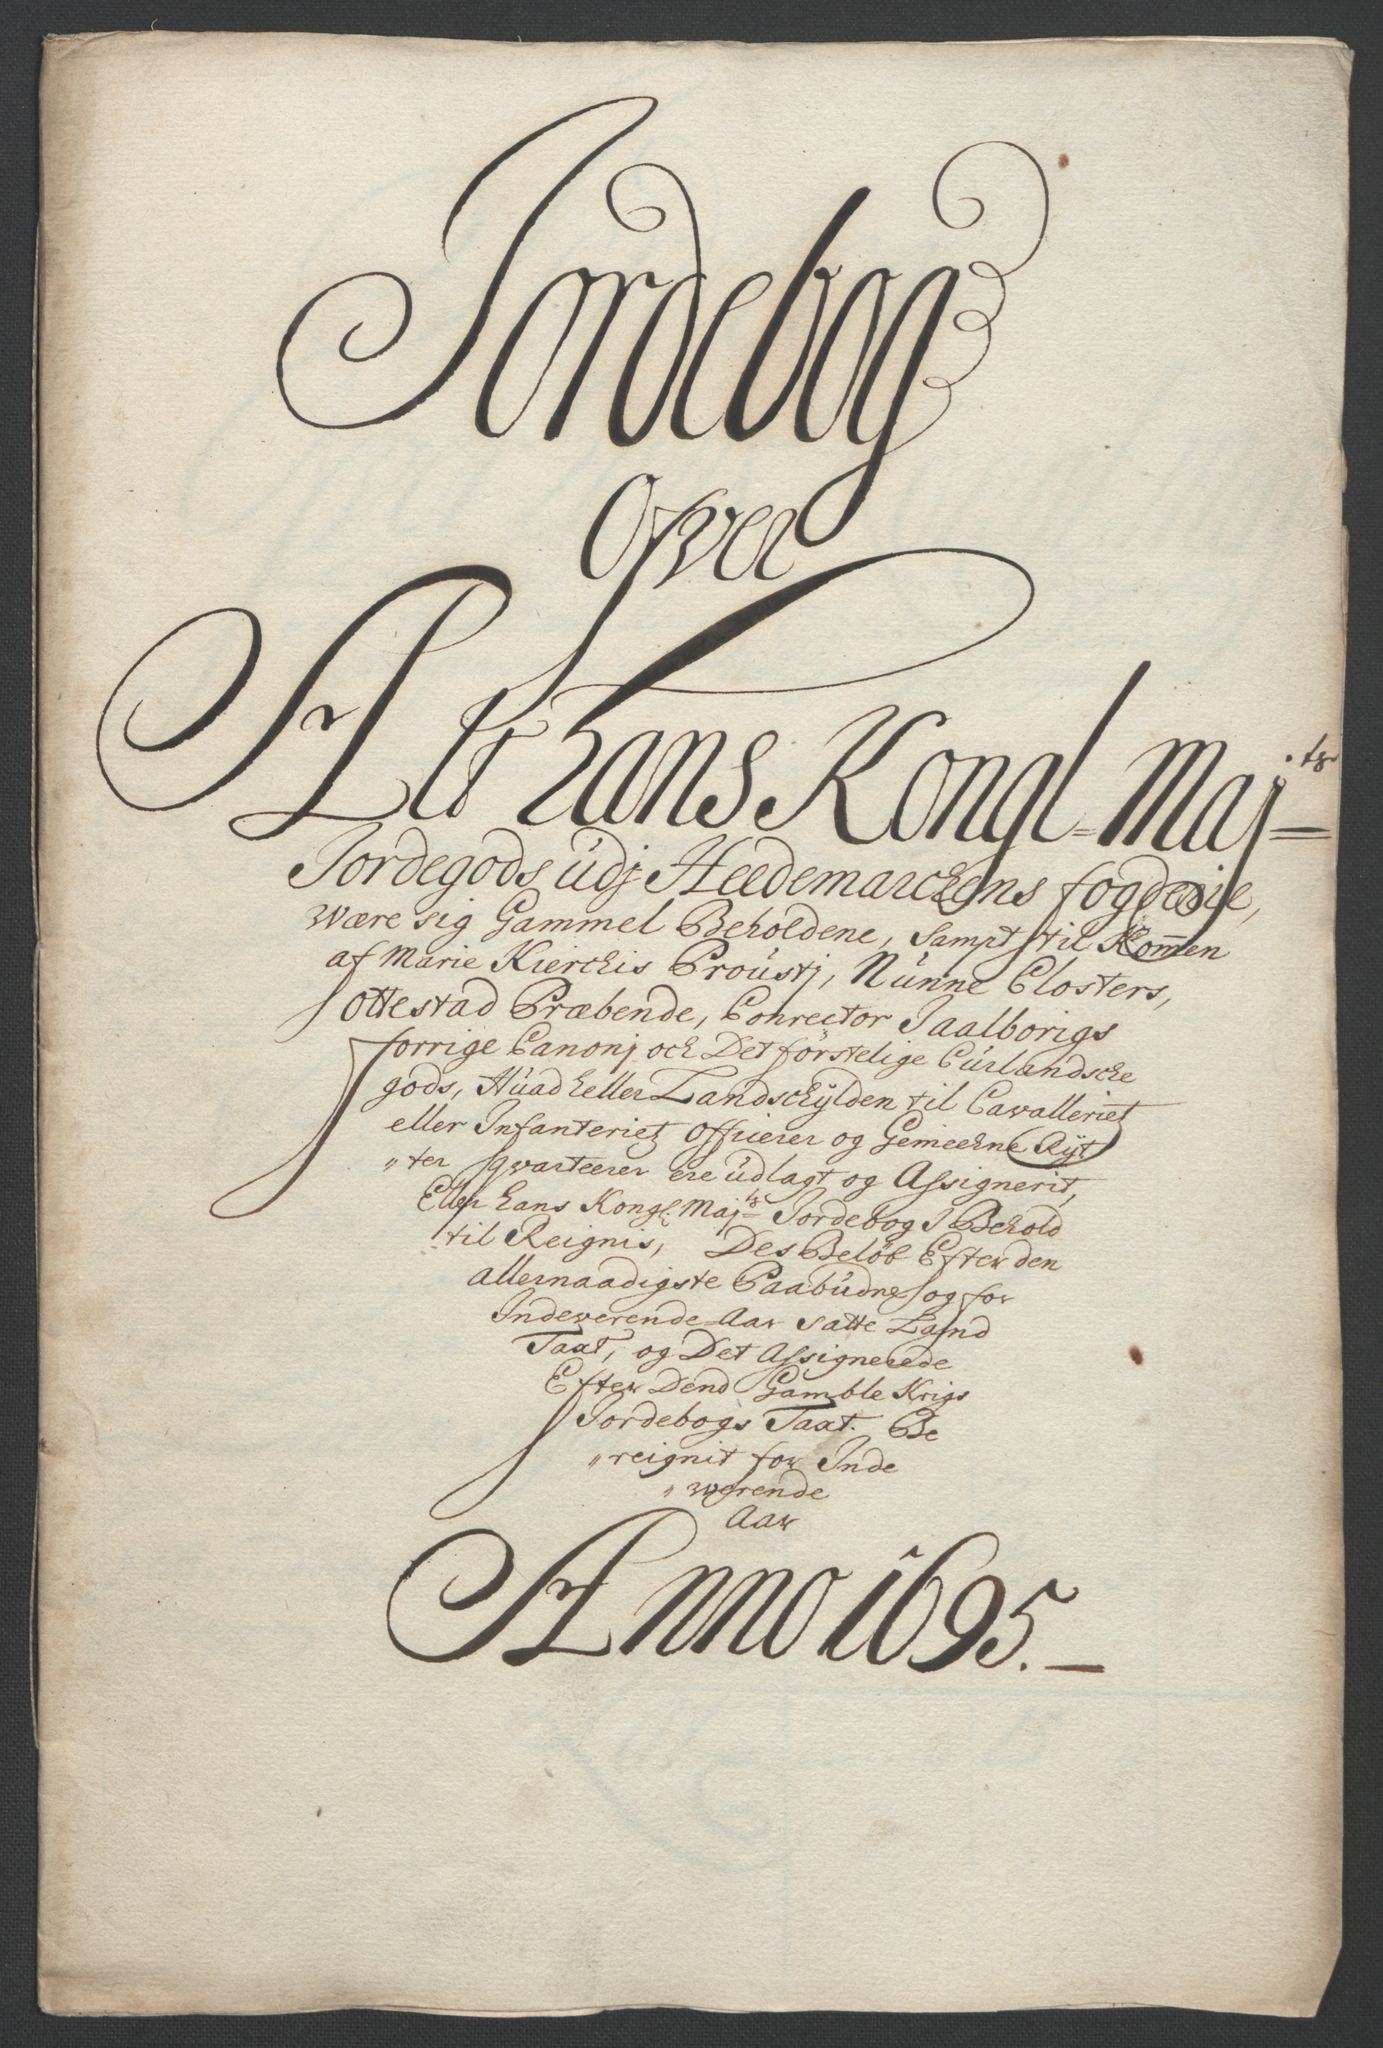 Jordebog
Ofver
Alt hans Kongl= Maj.ts
Jordegods udj Heedemarckens fogderie,
være sig Gammel Beholdene, Sampt til Kom̄en
af Marie Kierckis Proustj, Nunne Closters,
Ottestad Præbende, Conrector Jaalborigs
forrige Canonj och Det förstelige Curlandsche
gods, Huad heller Landschylden til Cavalleriet
eller Infanteriet Officerer og Gemeehne Ryt
„ter qvarteerer ere udlagt og Assignerit,
Eller hans Kongl: Maj.ts Jordebog J Behold
til Reignis, Des Beløb Efter den
allernaadigste Paabudne og for
Indeverende Aar satte Land
Taxt, og Det Assignerede
Efter Dend Gamble Krigs
Jordebogs Taxt. Be
„reignit for Inde
„werende
Aar
Anno 1695.